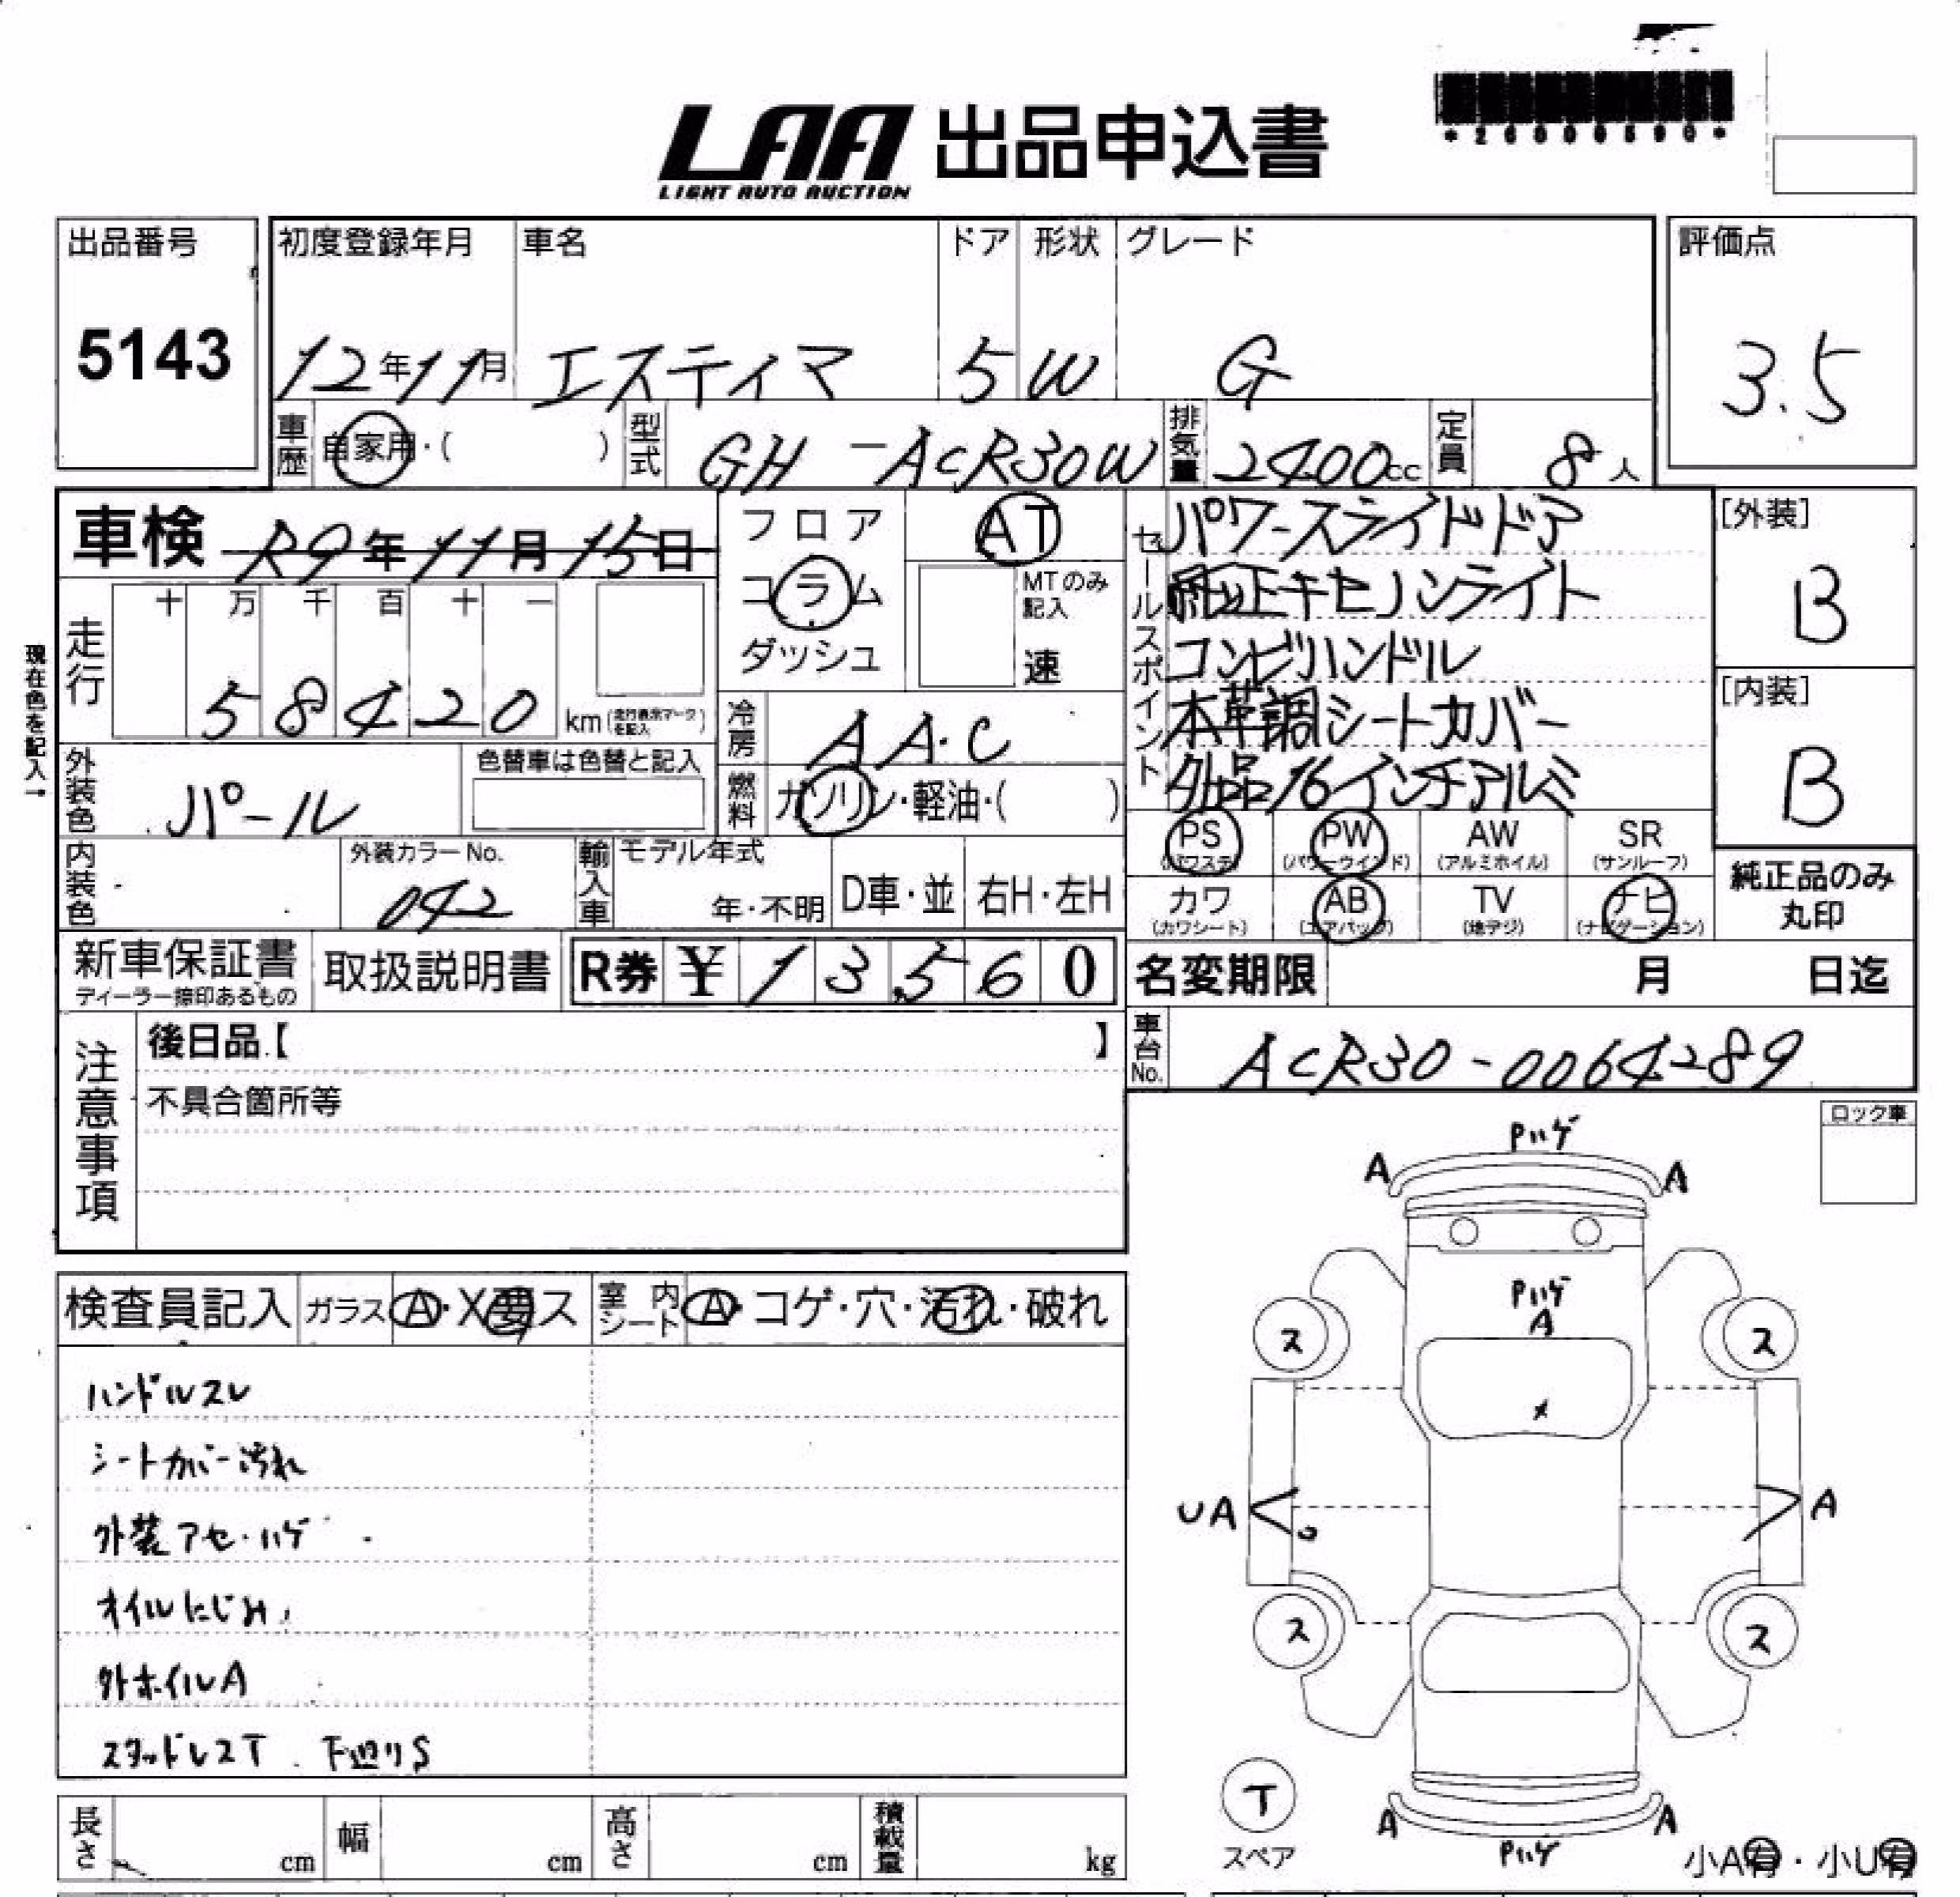 LAA 出品申込書
LIGHT AUTO AUCTION
出品番号 初度登録年月 車名 ドア 形状 グレード 評価点
5143 12年11月 エスティマ 5 W G 3.5
車歴 自家用・( ) 型式 GH-ACR30W 排気量 2400cc 定員 8人
車検 R9年11月15日 フロア AT セールスポイント パワースライドドア [外装]
B
コラム MTのみ記入 純正キセノンライト
現在色を記入→ 走行 十 万 千 百 十 一
58420 km(走行表示マークを記入) ダッシュ 速 コンビハンドル [内装]
B
冷房 AA.C 本革調シートカバー
外装色 パール 色替車は色替と記入 燃料 ガソリン・軽油・( ) 外品16インチアルミ
PS PW AW SR
(パワステ) (パワーウインド) (アルミホイル) (サンルーフ)
内装色 外装カラーNo. 042 輸入車 モデル年式 年・不明 D車・並 右H・左H
カワ AB TV ナビ 純正品のみ丸印
(カワシート) (エアバック) (地デジ) (ナビゲーション)
新車保証書 取扱説明書 R券 ¥ 13,560 名変期限 月 日迄
ディーラー捺印あるもの
注意事項 後日品【 】 車台No. ACR30-0064289
不具合箇所等 ロック車
Pハゲ
A A
検査員記入 ガラス A・X要ス 室内シート A・コゲ・穴・汚れ・破れ
Pハゲ
A
ス ス
ハンドルスレ
X
シートカバー汚れ
UA A
外装アセ・ハゲ
オイルにじみ
ス ス
外ホイルA
スタッドレスT 下廻りS
T
スペア
A A
Pハゲ
長さ cm 幅 cm 高さ cm 積載量 kg 小A有・小U有